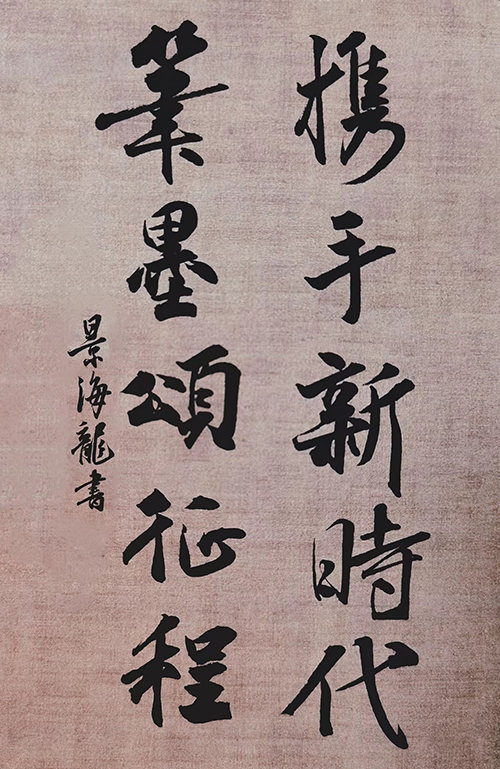 携手新時代
筆墨頌征程
景海龍書